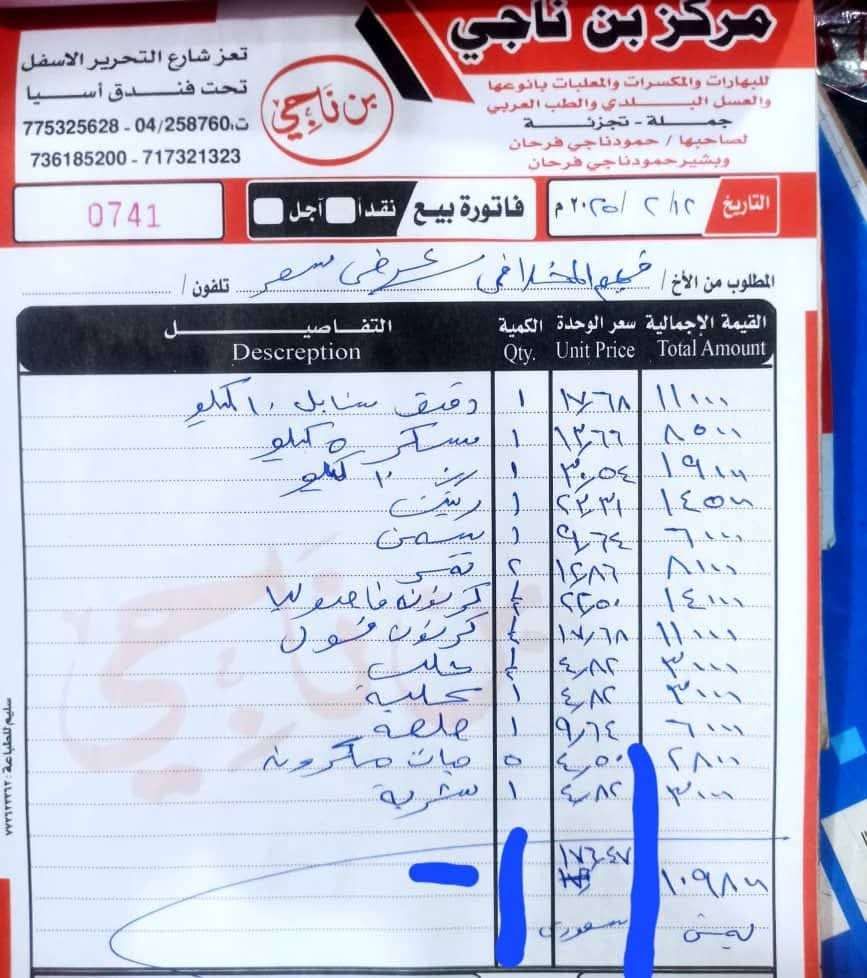 مركز بن ناجي
للبهارات والمكسرات والمعلبات بانوعها
والعسل البلدي والطب العربي
جملة - تجزئة
لصاحبها / حمودناجي فرحان
وبشيرحمودناجي فرحان
بن ناجي
تعز شارع التحرير الاسفل
تحت فندق أسيا
ت: 04/258760 - 775325628
736185200 - 717321323
التاريخ ١٢/ ٢ /٢٠٢٥م
فاتورة بيع نقداً آجل
0741
المطلوب من الأخ / المخلافي عرض سعر تلفون /
القيمة الإجمالية سعر الوحدة الكمية التفاصيل
Total Amount Unit Price Qty. Descreption
١١٠٠٠ ١٧٫٦٨ ١ دقيق سنابل ١٠ كيلو
٨٥٠٠ ١٣٫٦٦ ١ سكر ٥ كيلو
١٩٠٠٠ ٣٠٫٥٤ ١ رز ١٠ كيلو
١٤٥٠٠ ٢٣٫٣١ ١ زيت
٦٠٠٠ ٩٫٦٤ ١ سمن
٨٠٠٠ ١٢٫٨٦ ٢ تمر
١٤٠٠٠ ٢٢٫٥٠ ½ كرتون فاصوليا
١١٠٠٠ ١٧٫٦٨ ½ كرتون فول
٣٠٠٠ ٤٫٨٢
٣٠٠٠ ٤٫٨٢ ١
٦٠٠٠ ٩٫٦٤ ١ صلصة
٢٨٠٠ ٤٫٥٠ ٥ حبات مكرونه
٣٠٠٠ ٤٫٨٢ ١ شربة
١٠٩٨٠٠ ١٧٦٫٤٧
يمني سعودي
سليم للطباعة: ٧٧٢٦٢٢٢٦٢